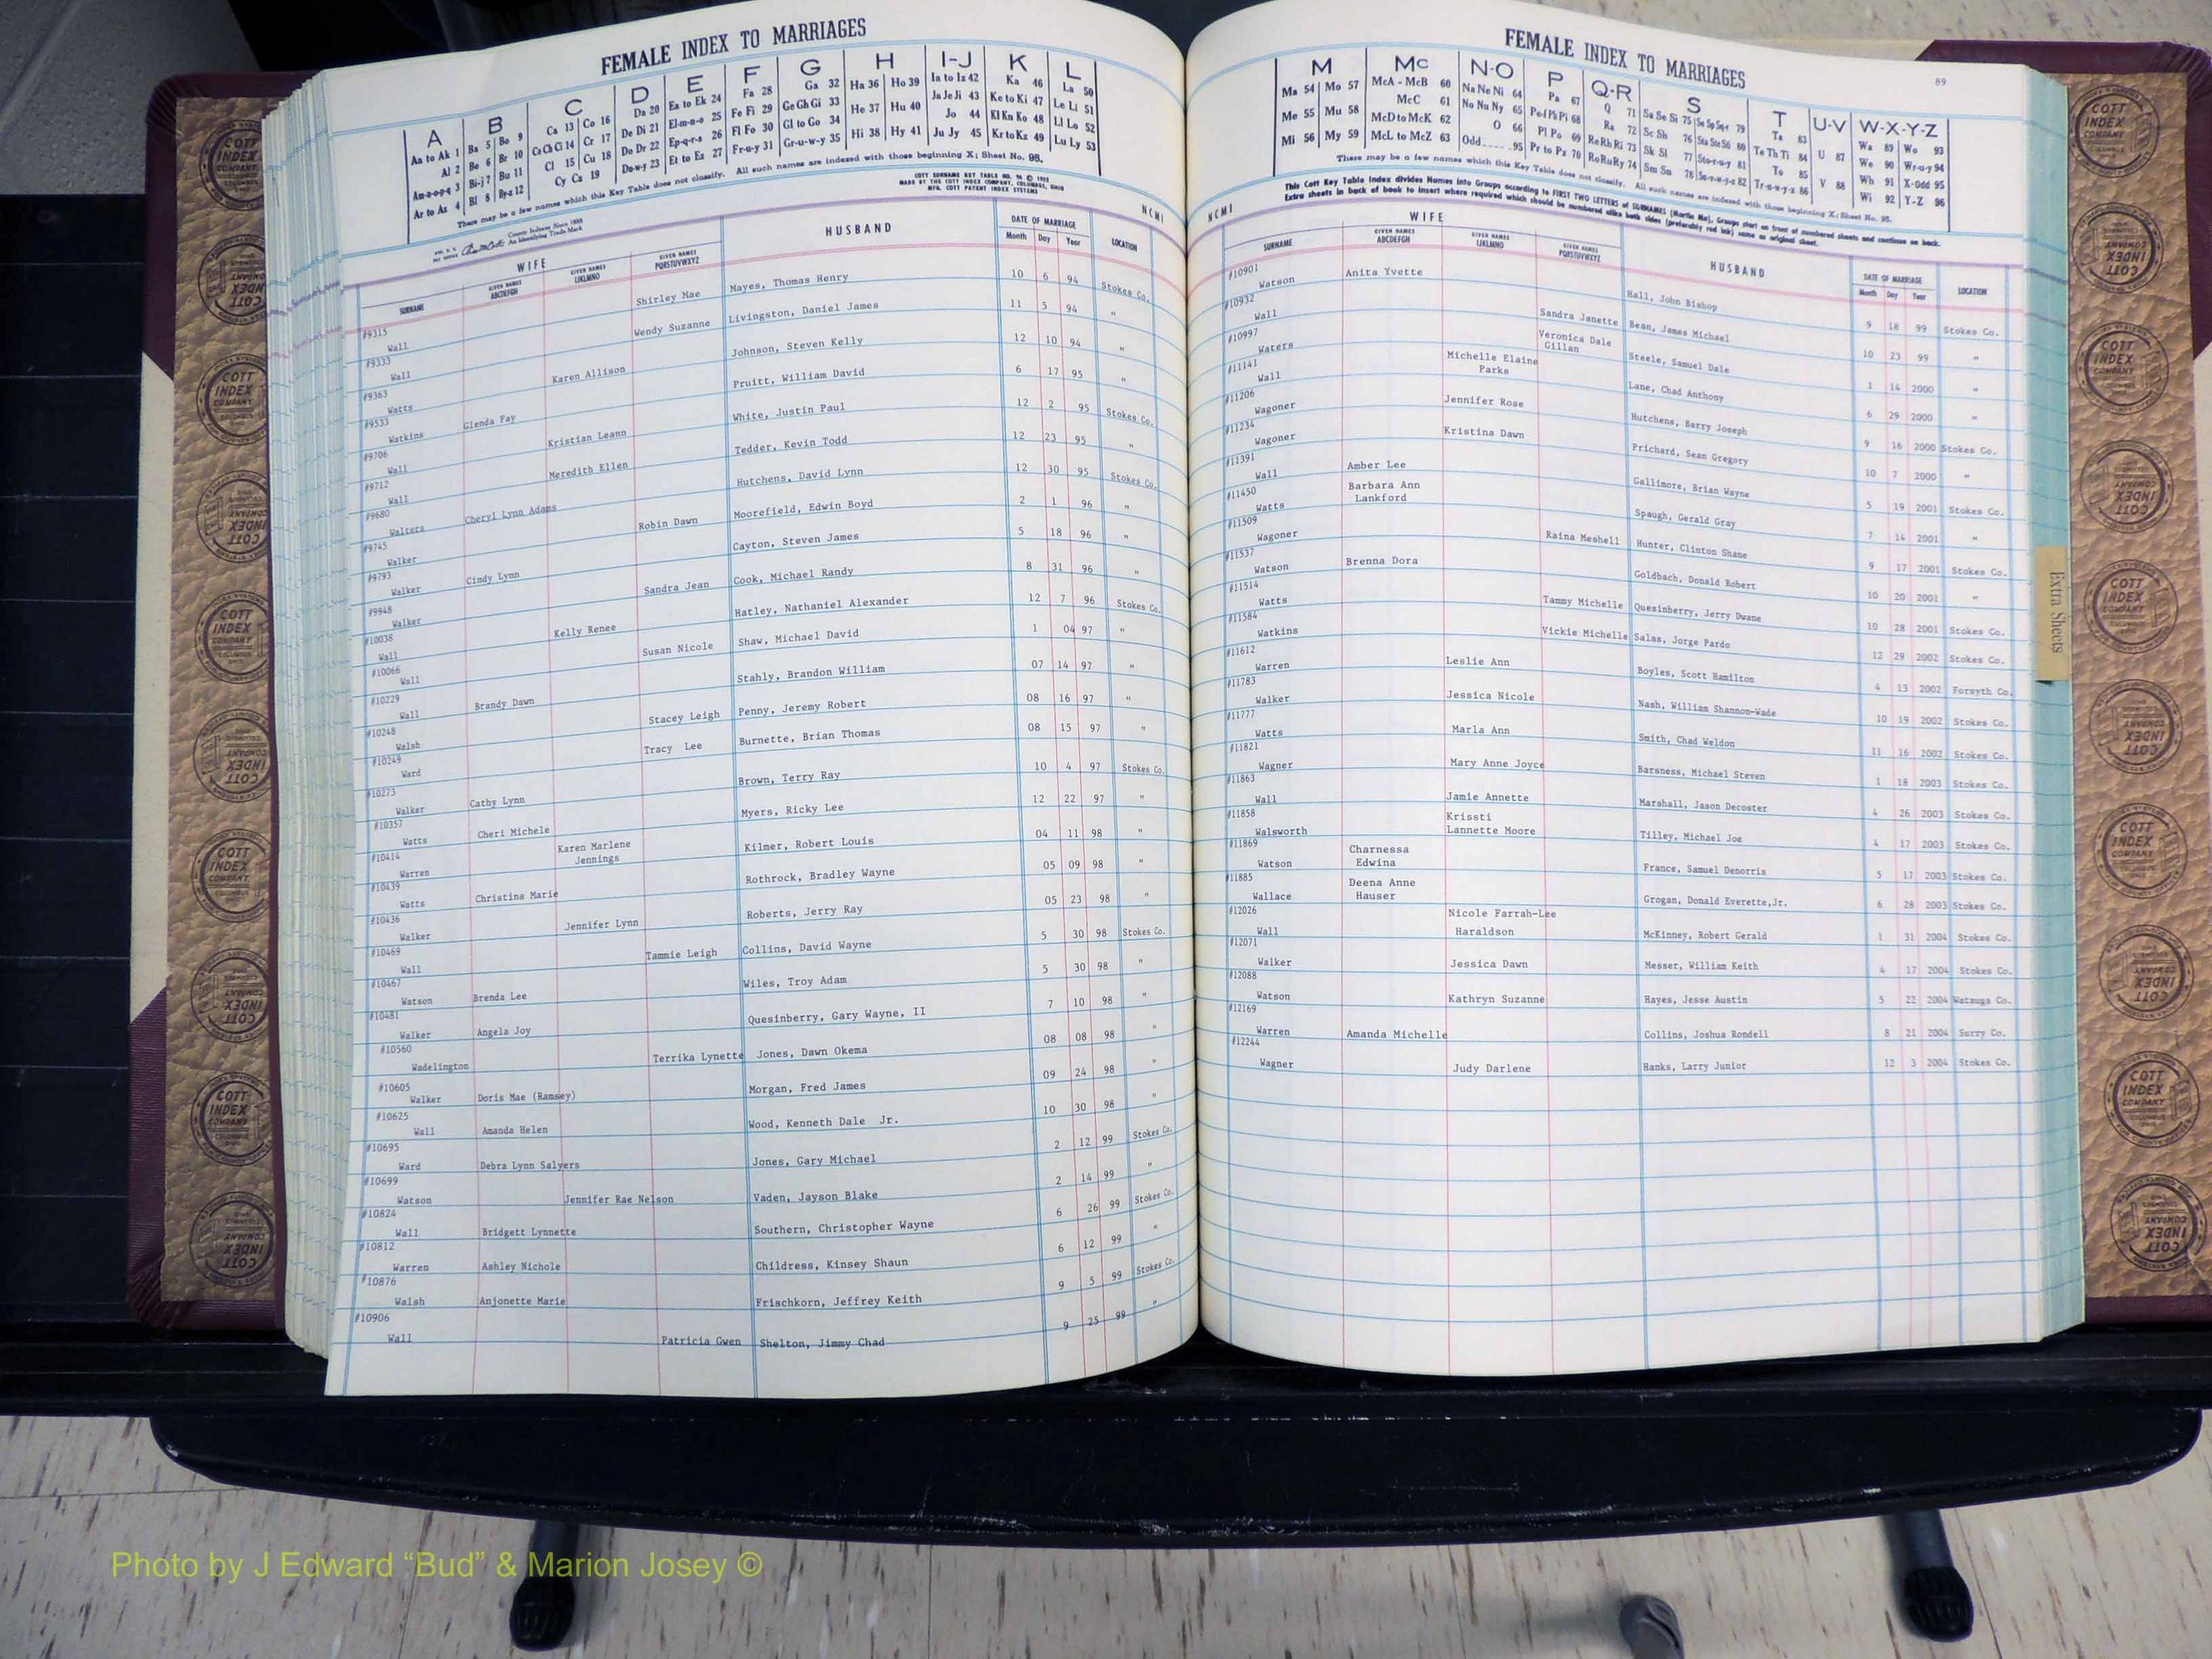 FEMALE INDEX TO MARRIAGES
A B C D E F G H I-J K L
Aa to Ak 1 Ba 5 Bo 9 Ca 13 Co 16 Da 20 Ea to Ek 24 Fa 28 Ga 32 Ha 36 Ho 39 Ia to Iz 42 Ka 46 La 50
Al 2 Be 6 Br 10 Ce Ch Ci 14 Cr 17 De Di 21 El-m-n-o 25 Fe Fi 29 Ge Gh Gi 33 He 37 Hu 40 Ja Je Ji 43 Ke to Ki 47 Le Li 51
Am-n-o-p-q 3 Bi-j 7 Bu 11 Cl 15 Cu 18 Do Dr 22 Ep-q-r-s 26 Fl Fo 30 Gl to Go 34 Hi 38 Hy 41 Jo 44 Kl Kn Ko 48 Ll Lo 52
Ar to Az 4 Bl 8 By-z 12 Cy Cz 19 Du-w-y 23 Et to Ez 27 Fr-u-y 31 Gr-u-w-y 35 Ju Jy 45 Kr to Kz 49 Lu Ly 53
There may be a few names which this Key Table does not classify. All such names are indexed with those beginning X; Sheet No. 95.
COTT SURNAME KEY TABLE NO. 96 © 1952
MADE BY THE COTT INDEX COMPANY, COLUMBUS, OHIO
MFG. COTT PATENT INDEX SYSTEMS
County Indexes Since 1888
An Identifying Trade Mark
NCMI
WIFE HUSBAND DATE OF MARRIAGE LOCATION
SURNAME GIVEN NAMES ABCDEFGH GIVEN NAMES IJKLMNO GIVEN NAMES PQRSTUVWXYZ Month Day Year
#9315 Wall Shirley Mae Mayes, Thomas Henry 10 6 94 Stokes Co.
#9333 Wall Wendy Suzanne Livingston, Daniel James 11 5 94 "
#9363 Watts Karen Allison Johnson, Steven Kelly 12 10 94 "
#9533 Watkins Glenda Fay Pruitt, William David 6 17 95 "
#9706 Wall Kristian Leann White, Justin Paul 12 2 95 Stokes Co.
#9712 Wall Meredith Ellen Tedder, Kevin Todd 12 23 95 "
#9680 Walters Cheryl Lynn Adams Hutchens, David Lynn 12 30 95 Stokes Co.
#9745 Walker Robin Dawn Moorefield, Edwin Boyd 2 1 96 "
#9793 Walker Cindy Lynn Cayton, Steven James 5 18 96 "
#9948 Walker Sandra Jean Cook, Michael Randy 8 31 96 "
#10038 Wall Kelly Renee Hatley, Nathaniel Alexander 12 7 96 Stokes Co.
#10066 Wall Susan Nicole Shaw, Michael David 1 04 97 "
#10229 Wall Brandy Dawn Stahly, Brandon William 07 14 97 "
#10248 Walsh Stacey Leigh Penny, Jeremy Robert 08 16 97 "
#10249 Ward Tracy Lee Burnette, Brian Thomas 08 15 97 "
#10273 Walker Cathy Lynn Brown, Terry Ray 10 4 97 Stokes Co.
#10357 Watts Cheri Michele Myers, Ricky Lee 12 22 97 "
#10414 Warren Karen Marlene Jennings Kilmer, Robert Louis 04 11 98 "
#10439 Watts Christina Marie Rothrock, Bradley Wayne 05 09 98 "
#10436 Walker Jennifer Lynn Roberts, Jerry Ray 05 23 98 "
#10469 Wall Tammie Leigh Collins, David Wayne 5 30 98 Stokes Co.
#10467 Watson Brenda Lee Wiles, Troy Adam 5 30 98 "
#10481 Walker Angela Joy Quesinberry, Gary Wayne, II 7 10 98 "
#10560 Wadelington Terrika Lynette Jones, Dawn Okema 08 08 98 "
#10605 Walker Doris Mae (Ramsey) Morgan, Fred James 09 24 98 "
#10625 Wall Amanda Helen Wood, Kenneth Dale Jr. 10 30 98 "
#10695 Ward Debra Lynn Salyers Jones, Gary Michael 2 12 99 Stokes Co.
#10699 Watson Jennifer Rae Nelson Vaden, Jayson Blake 2 14 99 "
#10824 Wall Bridgett Lynnette Southern, Christopher Wayne 6 26 99 Stokes Co.
#10812 Warren Ashley Nichole Childress, Kinsey Shaun 6 12 99 "
#10876 Walsh Anjonette Marie Frischkorn, Jeffrey Keith 9 5 99 Stokes Co.
#10906 Wall Patricia Gwen Shelton, Jimmy Chad 9 25 99 "
FEMALE INDEX TO MARRIAGES
89
M Mc N-O P Q-R S T U-V W-X-Y-Z
Ma 54 Mo 57 McA - McB 60 Na Ne Ni 64 Pa 67 Q 71 Sa Se Si 75 So Sp Sq-r 79 Ta 83 Wa 89 Wo 93
Me 55 Mu 58 McC 61 No Nu Ny 65 Pe-f Ph Pi 68 Ra 72 Sc Sh 76 Sta Ste 80 Te Th Ti 84 U 87 We 90 Wr-u-y 94
McD to McK 62 O 66 Pl Po 69 Re Rh Ri 73 Sk Sl 77 Sto-r-u-y 81 To 85 Wh 91 X-Odd 95
Mi 56 My 59 McL to McZ 63 Odd 95 Pr to Pz 70 Ro Ru Ry 74 Sm Sn 78 Su-v-w-y-z 82 Tr-u-w-y-z 86 V 88 Wi 92 Y-Z 96
There may be a few names which this Key Table does not classify. All such names are indexed with those beginning X; Sheet No. 95.
This Cott Key Table Index divides Names into Groups according to FIRST TWO LETTERS of SURNAMES (Martin Ma), Groups start on front of numbered sheets and continue on back.
Extra sheets in back of book to insert where required which should be numbered alike both sides (preferably red ink) same as original sheet.
NCMI
WIFE HUSBAND DATE OF MARRIAGE LOCATION
SURNAME GIVEN NAMES ABCDEFGH GIVEN NAMES IJKLMNO GIVEN NAMES PQRSTUVWXYZ Month Day Year
#10901 Watson Anita Yvette Hall, John Bishop 9 18 99 Stokes Co.
#10932 Wall Sandra Janette Bean, James Michael 10 23 99 "
#10997 Waters Veronica Dale Gillan Steele, Samuel Dale 1 14 2000 "
#11141 Wall Michelle Elaine Parks Lane, Chad Anthony 6 29 2000 "
#11206 Wagoner Jennifer Rose Hutchens, Barry Joseph 9 16 2000 Stokes Co.
#11234 Wagoner Kristina Dawn Prichard, Sean Gregory 10 7 2000 "
#11391 Wall Amber Lee Gallimore, Brian Wayne 5 19 2001 Stokes Co.
#11450 Watts Barbara Ann Lankford Spaugh, Gerald Gray 7 14 2001 "
#11509 Wagoner Raina Meshell Hunter, Clinton Shane 9 17 2001 Stokes Co.
#11537 Watson Brenna Dora Goldbach, Donald Robert 10 20 2001 "
#11514 Watts Tammy Michelle Quesinberry, Jerry Dwane 10 28 2001 Stokes Co.
#11584 Watkins Vickie Michelle Salas, Jorge Pardo 12 29 2002 Stokes Co.
#11612 Warren Leslie Ann Boyles, Scott Hamilton 4 13 2002 Forsyth Co.
#11783 Walker Jessica Nicole Nash, William Shannon-Wade 10 19 2002 Stokes Co.
#11777 Watts Marla Ann Smith, Chad Weldon 11 16 2002 Stokes Co.
#11821 Wagner Mary Anne Joyce Barsness, Michael Steven 1 18 2003 Stokes Co.
#11863 Wall Jamie Annette Marshall, Jason Decoster 4 26 2003 Stokes Co.
#11858 Walsworth Krissti Lannette Moore Tilley, Michael Joe 4 17 2003 Stokes Co.
#11869 Watson Charnessa Edwina France, Samuel Denorris 5 17 2003 Stokes Co.
#11885 Wallace Deena Anne Hauser Grogan, Donald Everette,Jr. 6 28 2003 Stokes Co.
#12026 Wall Nicole Farrah-Lee Haraldson McKinney, Robert Gerald 1 31 2004 Stokes Co.
#12071 Walker Jessica Dawn Messer, William Keith 4 17 2004 Stokes Co.
#12088 Watson Kathryn Suzanne Hayes, Jesse Austin 5 22 2004 Watauga Co.
#12169 Warren Amanda Michelle Collins, Joshua Rondell 8 21 2004 Surry Co.
#12244 Wagner Judy Darlene Hanks, Larry Junior 12 3 2004 Stokes Co.
Extra Sheets
COTT INDEX COMPANY
Photo by J Edward “Bud” & Marion Josey ©